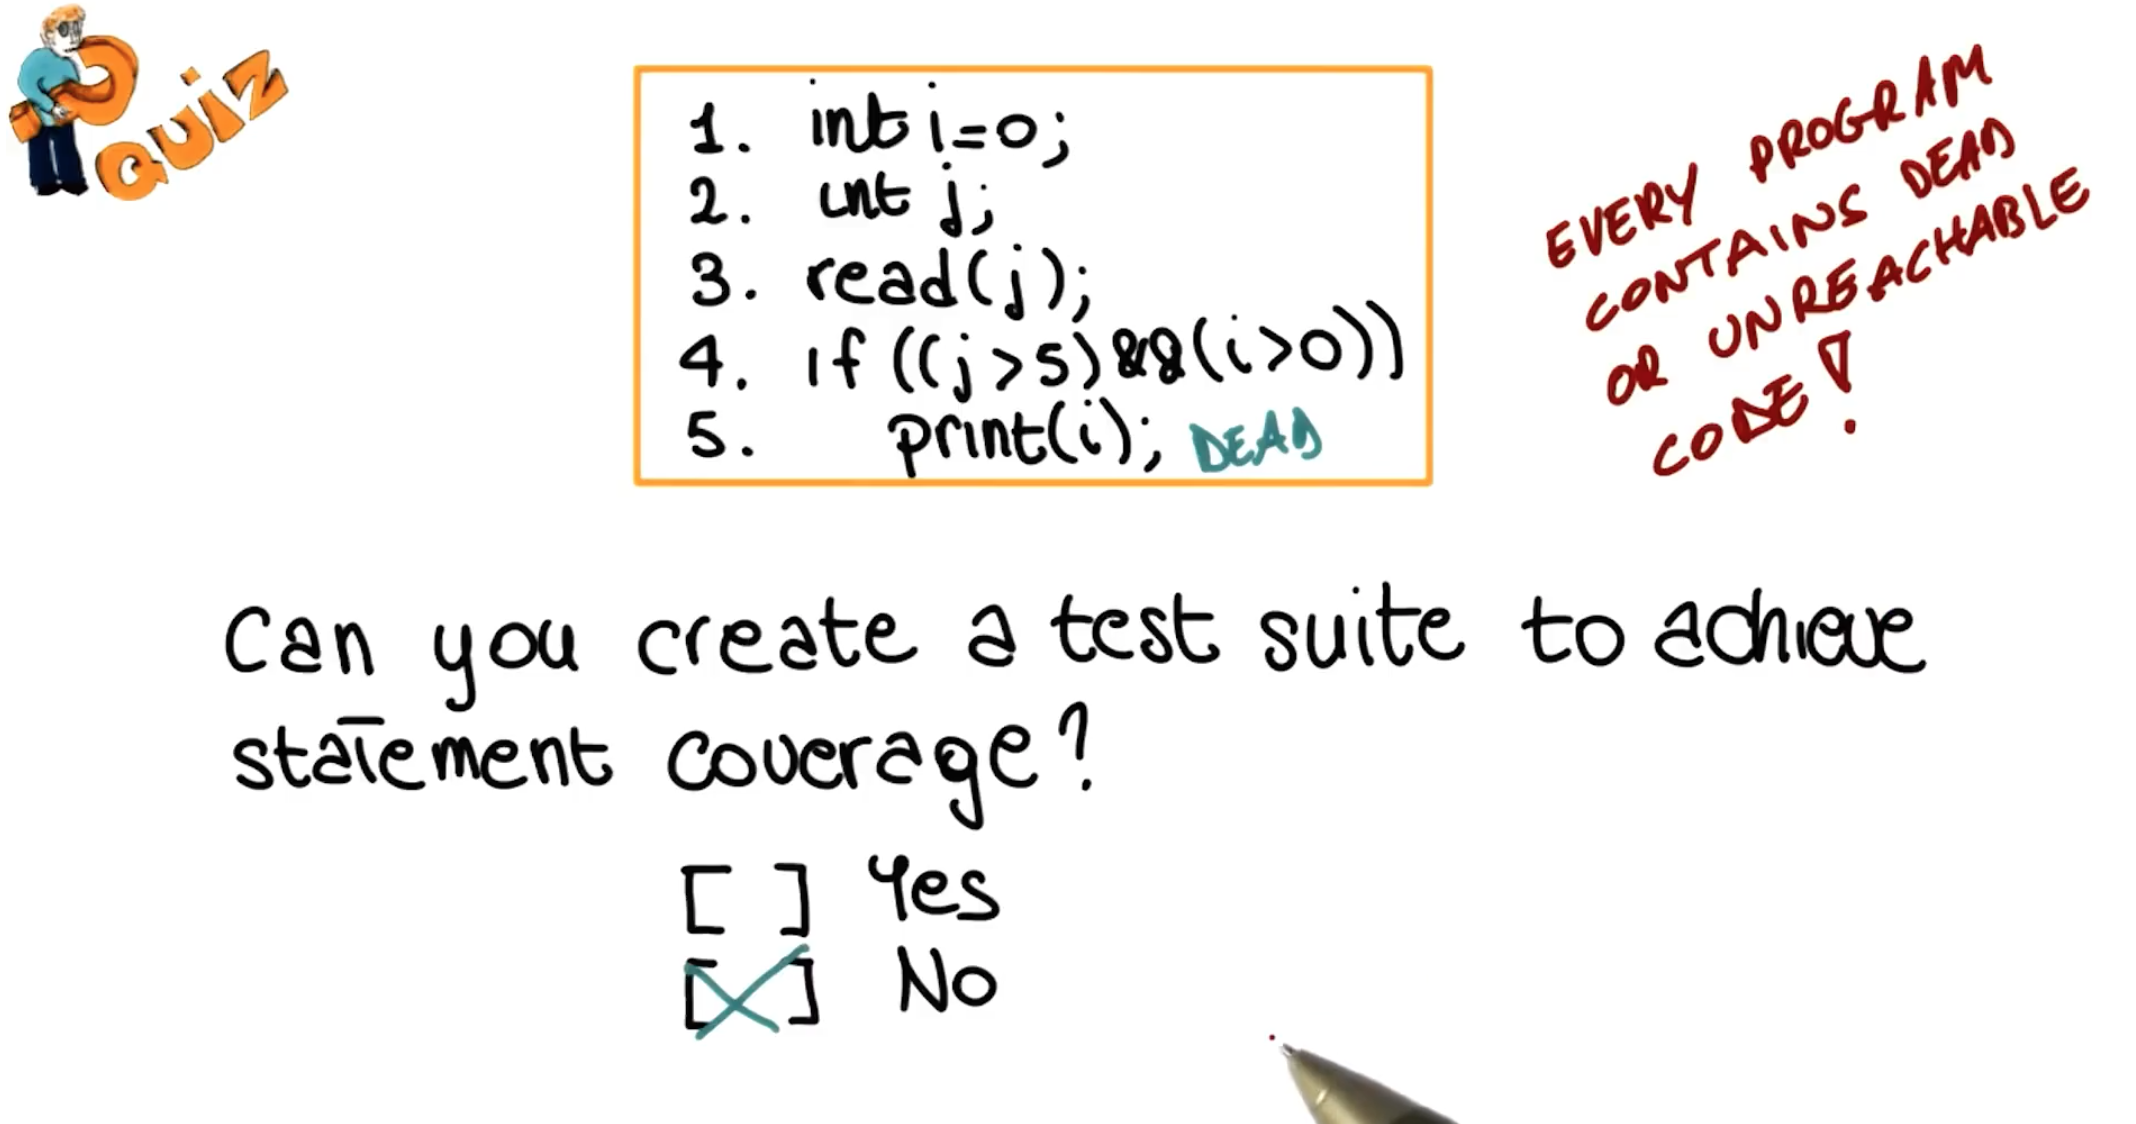 QUIZ
1. int i=0;
2. int j;
3. read(j);
4. if ((j>5)&&(i>0))
5. print(i); DEAD
EVERY PROGRAM
CONTAINS DEAD
OR UNREACHABLE
CODE!
Can you create a test suite to achieve
statement coverage?
[ ] Yes
[X] No